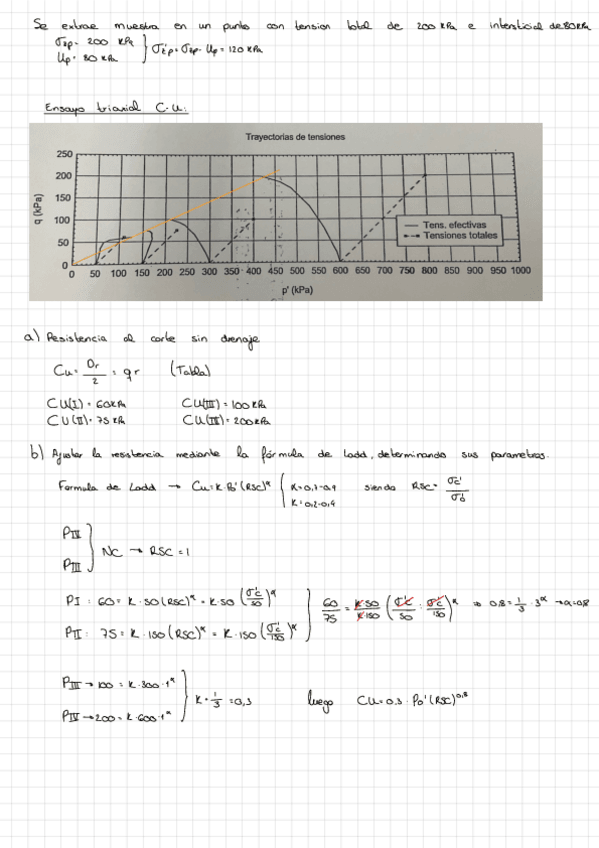 Se extrae muestra en un punto con tension total de 200 kPa e intersticial de 80 kPa
σzp = 200 kPa
Up = 80 kPa } σ'zp = σzp - Up = 120 kPa
Ensayo triaxial C.U:
Trayectorias de tensiones
q (kPa)
250
200
150
100
50
0
Tens. efectivas
Tensiones totales
0 50 100 150 200 250 300 350 400 450 500 550 600 650 700 750 800 850 900 950 1000
p' (kPa)
a) Resistencia al corte sin drenaje
Cu = Dr/2 = qr (Tabla)
CU(I) = 60 kPa CU(III) = 100 kPa
CU(II) = 75 kPa CU(IV) = 200 kPa
b) Ajustar la resistencia mediante la fórmula de Ladd, determinando sus parametros.
Formula de Ladd → Cu = K·Po'(RSC)^α { α = 0,7-0,9 siendo RSC = σc'/σo'
K = 0,2-0,4
PIV
PIII } NC → RSC = 1
PI : 60 = K·50(RSC)^α = K·50(σ'c/50)^α
PII : 75 = K·150(RSC)^α = K·150(σ'c/150)^α } 60/75 = K·50/K·150 (σ'c/50 : σ'c/150)^α ⇒ 0,8 = 1/3·3^α → α = 0,8
PIII → 100 = K·300·1^α
PIV → 200 = K·600·1^α } K = 1/3 = 0,3 luego CU = 0,3·Po'(RSC)^0,8